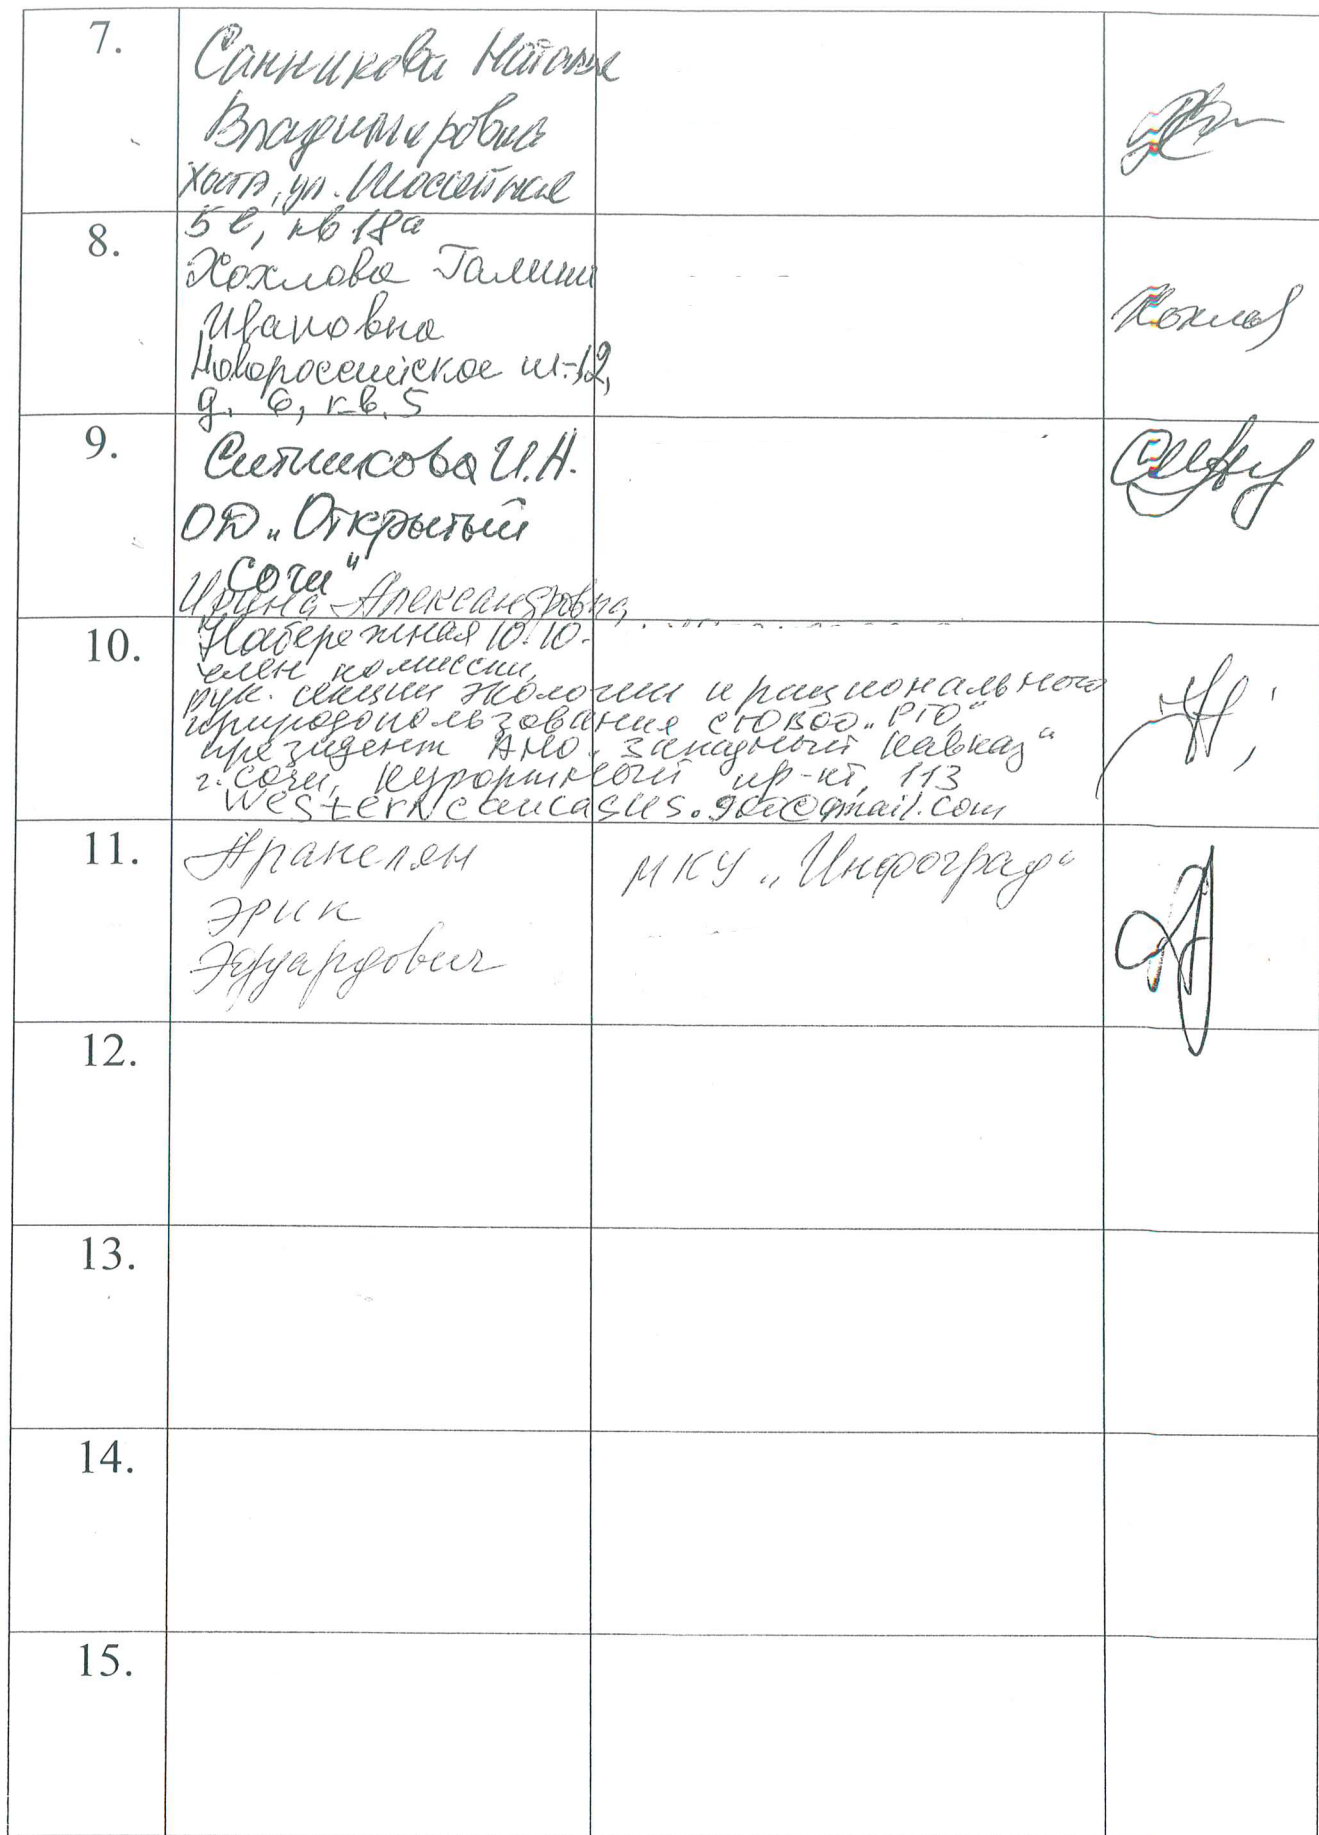 7.
Санникова Наталья
Владимировна
Хоста, ул. Шоссейная
5 е, кв 18а
8.
Хохлова Галина
Ивановна
Новороссийское ш-12,
д. 6, кв. 5
Хохлов
9.
Ситникова И.Н.
ОД „Открытый
Сочи"
Ирина Александровна
10.
Набережная 10.10.
член комиссии,
рук. секции экологии и рационального
природопользования СОВОО „РГО"
президент АНО „Западный Кавказ"
г. Сочи, Курортный пр-кт, 113
11.
Аракелян
Эрик
Эдуардович
МКУ „Инфоград"
12.
13.
14.
15.